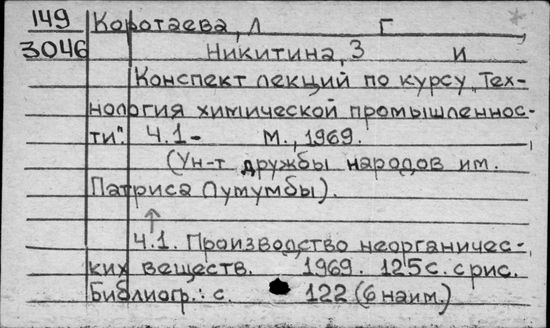 149 Коротаева, Л Г
3046 Никитина, З И
Конспект лекций по курсу „Тех-
нология химической промышленнос-
ти". Ч.1- М., 1969.
(Ун-т дружбы народов им.
Патриса Лумумбы).
Ч.1. Производство неорганичес-
ких веществ. 1969. 125 с. с рис.
Библиогр.: с. 122 (6 наим.)